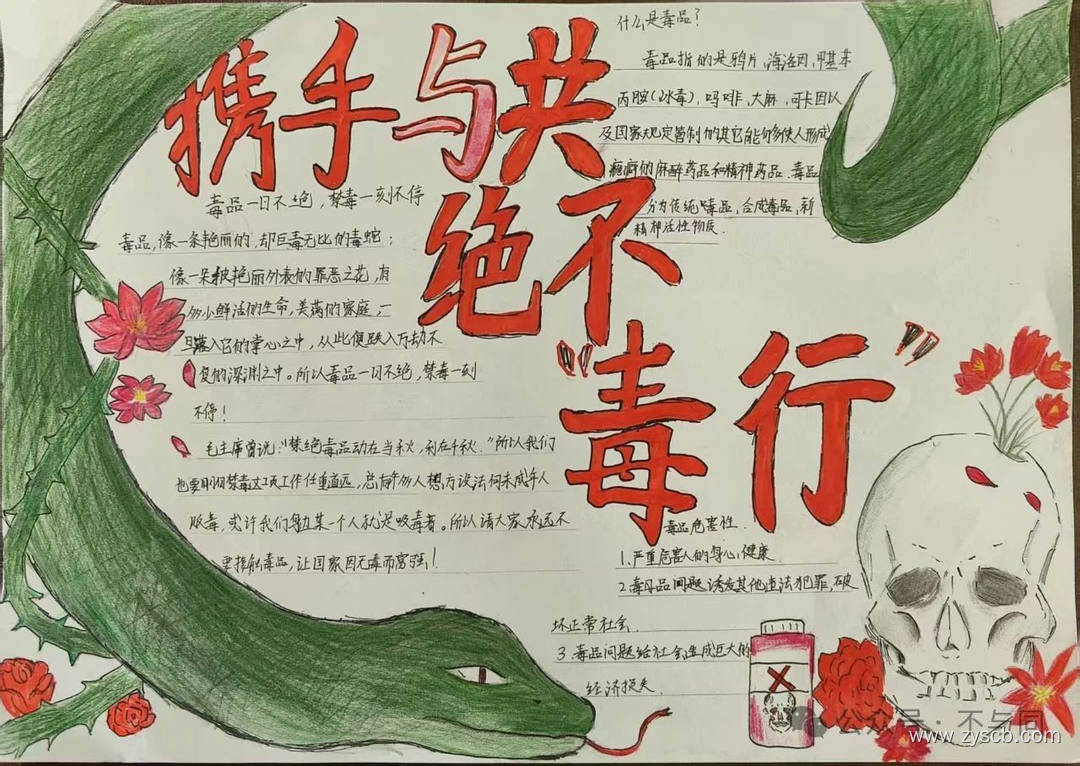 携手与共
绝不
“毒行”
毒品一日不绝，禁毒一刻不停
毒品，像一条艳丽的，却巨毒无比的毒蛇；
像一朵披艳丽外表的罪恶之花，有
多少鲜活的生命，美满的家庭，一
旦落入它的掌心之中，从此便跌入万劫不
复的深渊之中。所以毒品一日不绝，禁毒一刻
不停！
毛主席曾说：“禁绝毒品功在当秋，利在千秋．”所以我们
也要明白禁毒这工作任重道远，总有多人想方设法向未成年人
贩毒，或许我们身边某一个人就是吸毒者。所以请大家永远不
要接触毒品，让国家因无毒而富强！
什么是毒品？
毒品指的是鸦片，海洛因，甲基苯
丙胺（冰毒），吗啡，大麻，可卡因以
及国家规定管制的其它能够使人形成
瘾癖的麻醉药品和精神药品．毒品
分为传统毒品，合成毒品，新
精神活性物质．
毒品危害性．
1．严重危害人的身心健康．
2．毒品问题诱发其他违法犯罪，破
坏正常社会．
3．毒品问题给社会造成巨大的
经济损失．
公众号·不与同
www.zyscb.com